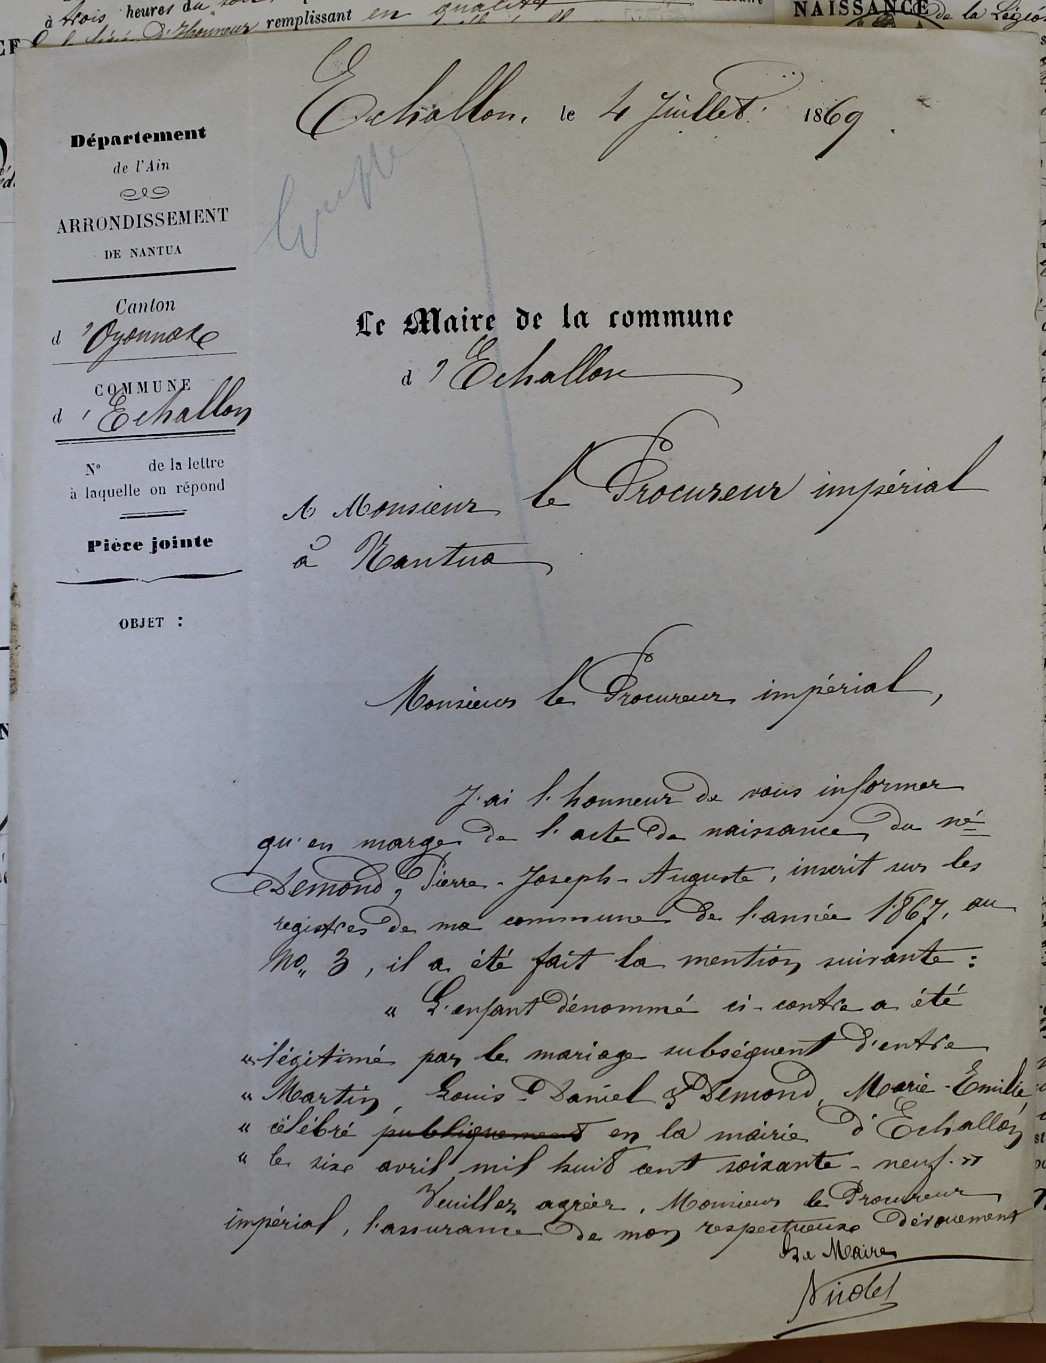 à trois heures du soir
remplissant en qualité
NAISSANCE
de la Légion
d'honneur
Echallon, le 4 Juillet 1869.
Département
de l'Ain
ARRONDISSEMENT
DE NANTUA
Canton
d'Oyonnax
COMMUNE
d'Echallon
N° de la lettre
à laquelle on répond
Pièce jointe
OBJET :
Le Maire de la commune
d'Echallon
A Monsieur le Procureur impérial
à Nantua
Monsieur le Procureur impérial,
J'ai l'honneur de vous informer
qu'en marge de l'acte de naissance du né
Demond, Pierre-Joseph-Auguste, inscrit sur les
registres de ma commune de l'année 1867, au
No. 3, il a été fait la mention suivante :
" L'enfant dénommé ci-contre a été
" légitimé par le mariage subséquent d'entre
" Martin, Louis-Daniel & Demond, Marie-Emilie,
" célébré publiquement en la mairie d'Echallon
" le six avril mil huit cent soixante-neuf. "
Veuillez agréer, Monsieur le Procureur
impérial, l'assurance de mon respectueux dévouement
Le Maire